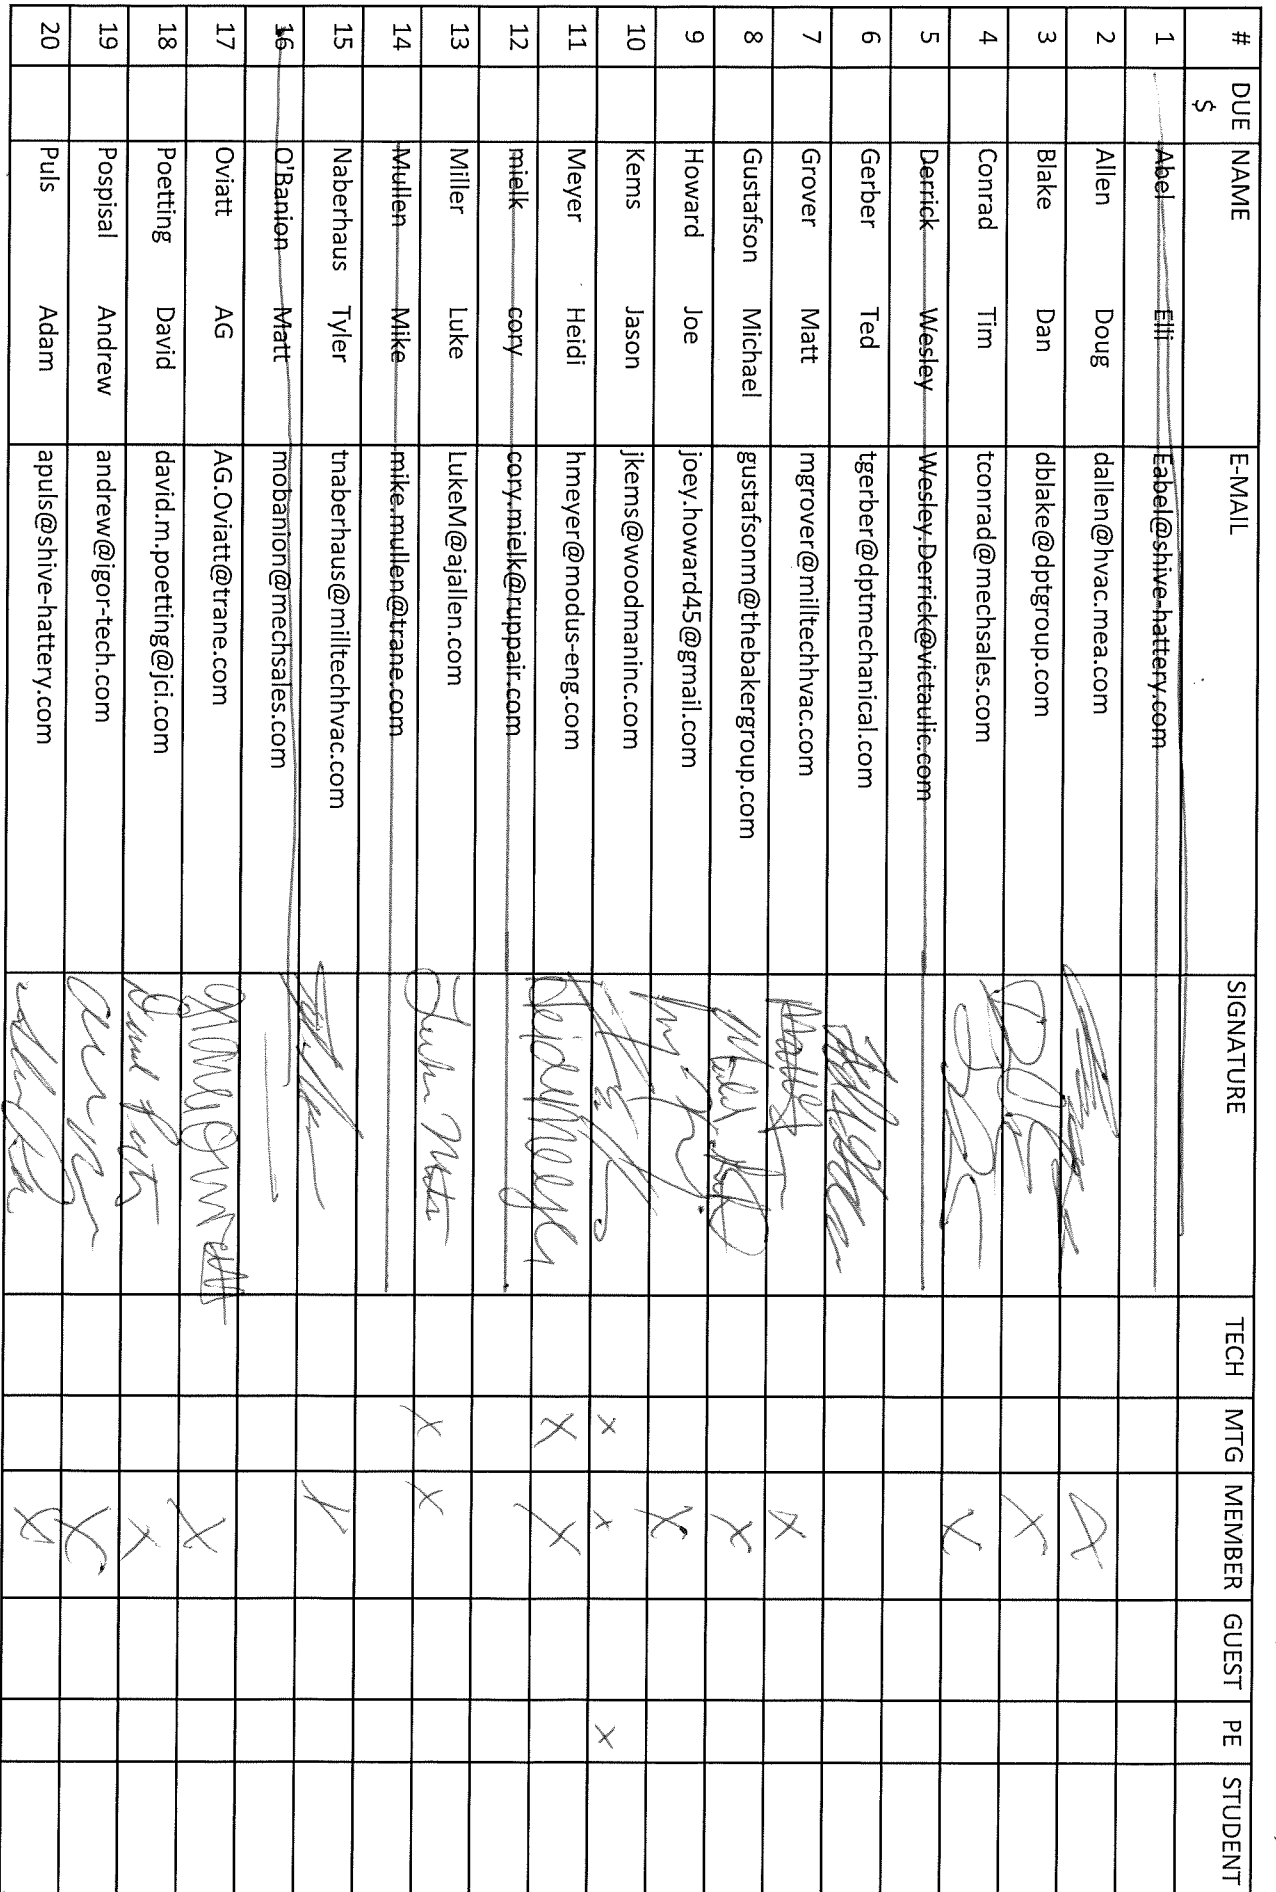 # DUE $ NAME E-MAIL SIGNATURE TECH MTG MEMBER GUEST PE STUDENT
1 Abel Elli Eabel@shive-hattery.com
2 Allen Doug dallen@hvac.mea.com X
3 Blake Dan dblake@dptgroup.com X
4 Conrad Tim tconrad@mechsales.com X
5 Derrick Wesley Wesley.Derrick@victaulic.com
6 Gerber Ted tgerber@dptmechanical.com
7 Grover Matt mgrover@milltechhvac.com X
8 Gustafson Michael gustafsonm@thebakergroup.com X
9 Howard Joe joey.howard45@gmail.com X
10 Kems Jason jkems@woodmaninc.com X X X
11 Meyer Heidi hmeyer@modus-eng.com Heidi Meyer X X
12 mielk cory cory.mielk@ruppair.com
13 Miller Luke LukeM@ajallen.com X X
14 Mullen Mike mike.mullen@trane.com
15 Naberhaus Tyler tnaberhaus@milltechhvac.com X
16 O'Banion Matt mobanion@mechsales.com
17 Oviatt AG AG.Oviatt@trane.com X
18 Poetting David david.m.poetting@jci.com X
19 Pospisal Andrew andrew@igor-tech.com X
20 Puls Adam apuls@shive-hattery.com X